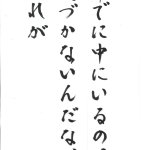 でに中にいるの
づかないんだな
れが